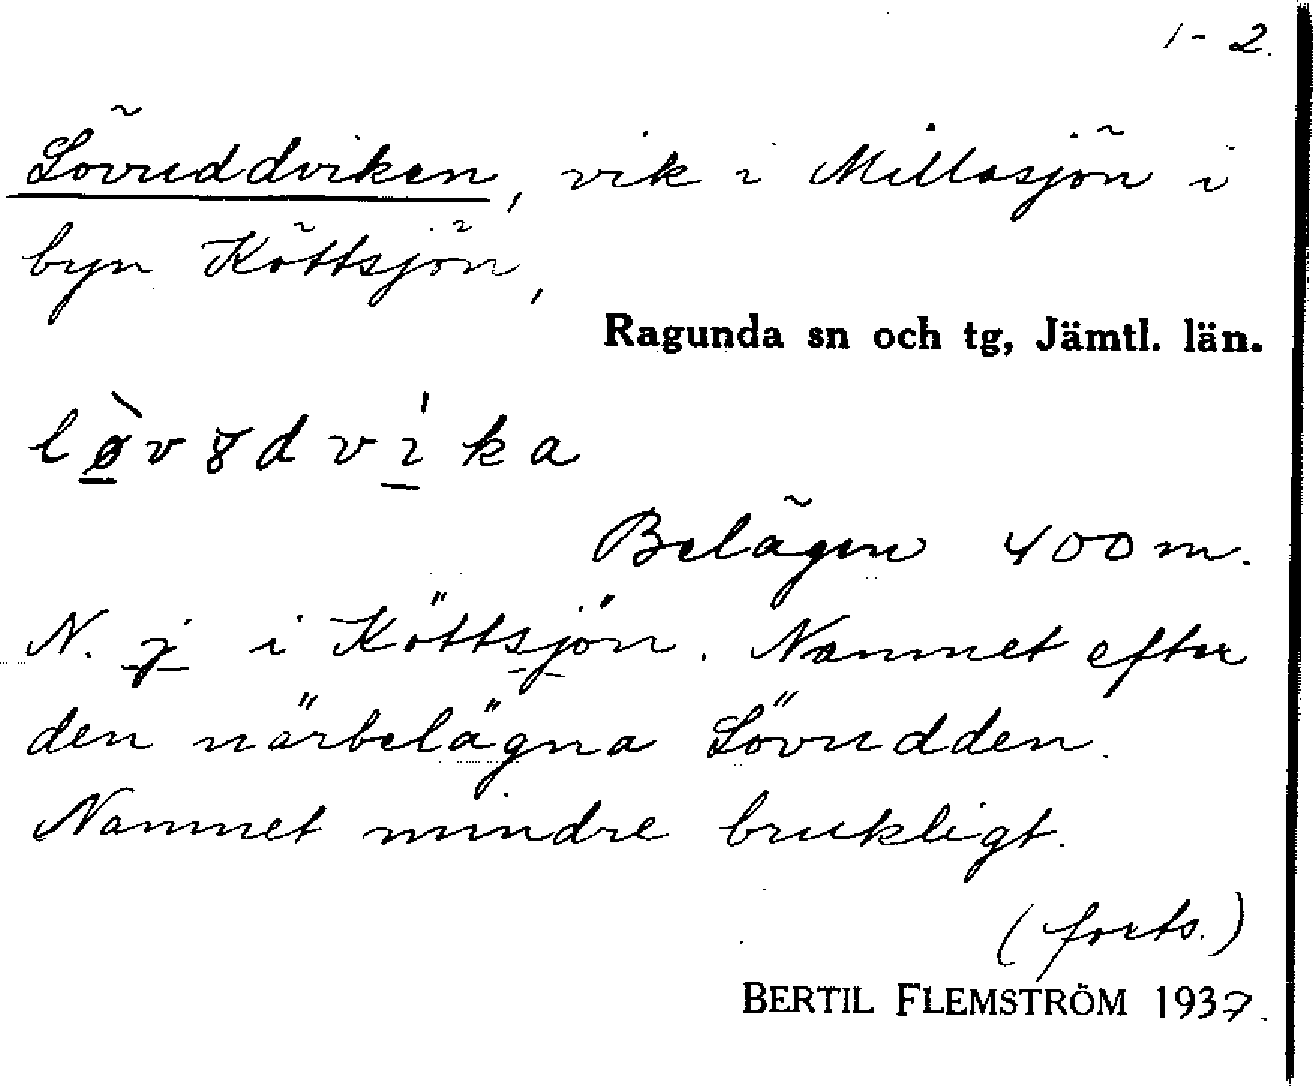 1-2.
Lövuddviken, vik i Millasjön i
byn Köttsjön,
Ragunda sn och tg, Jämtl. län.
lø̀vɤdvi̍ka
Belägen 400 m.
N. j i Köttsjön. Namnet efter
den närbelägna Lövudden.
Namnet mindre brukligt.
(forts.)
BERTIL FLEMSTRÖM 1937.